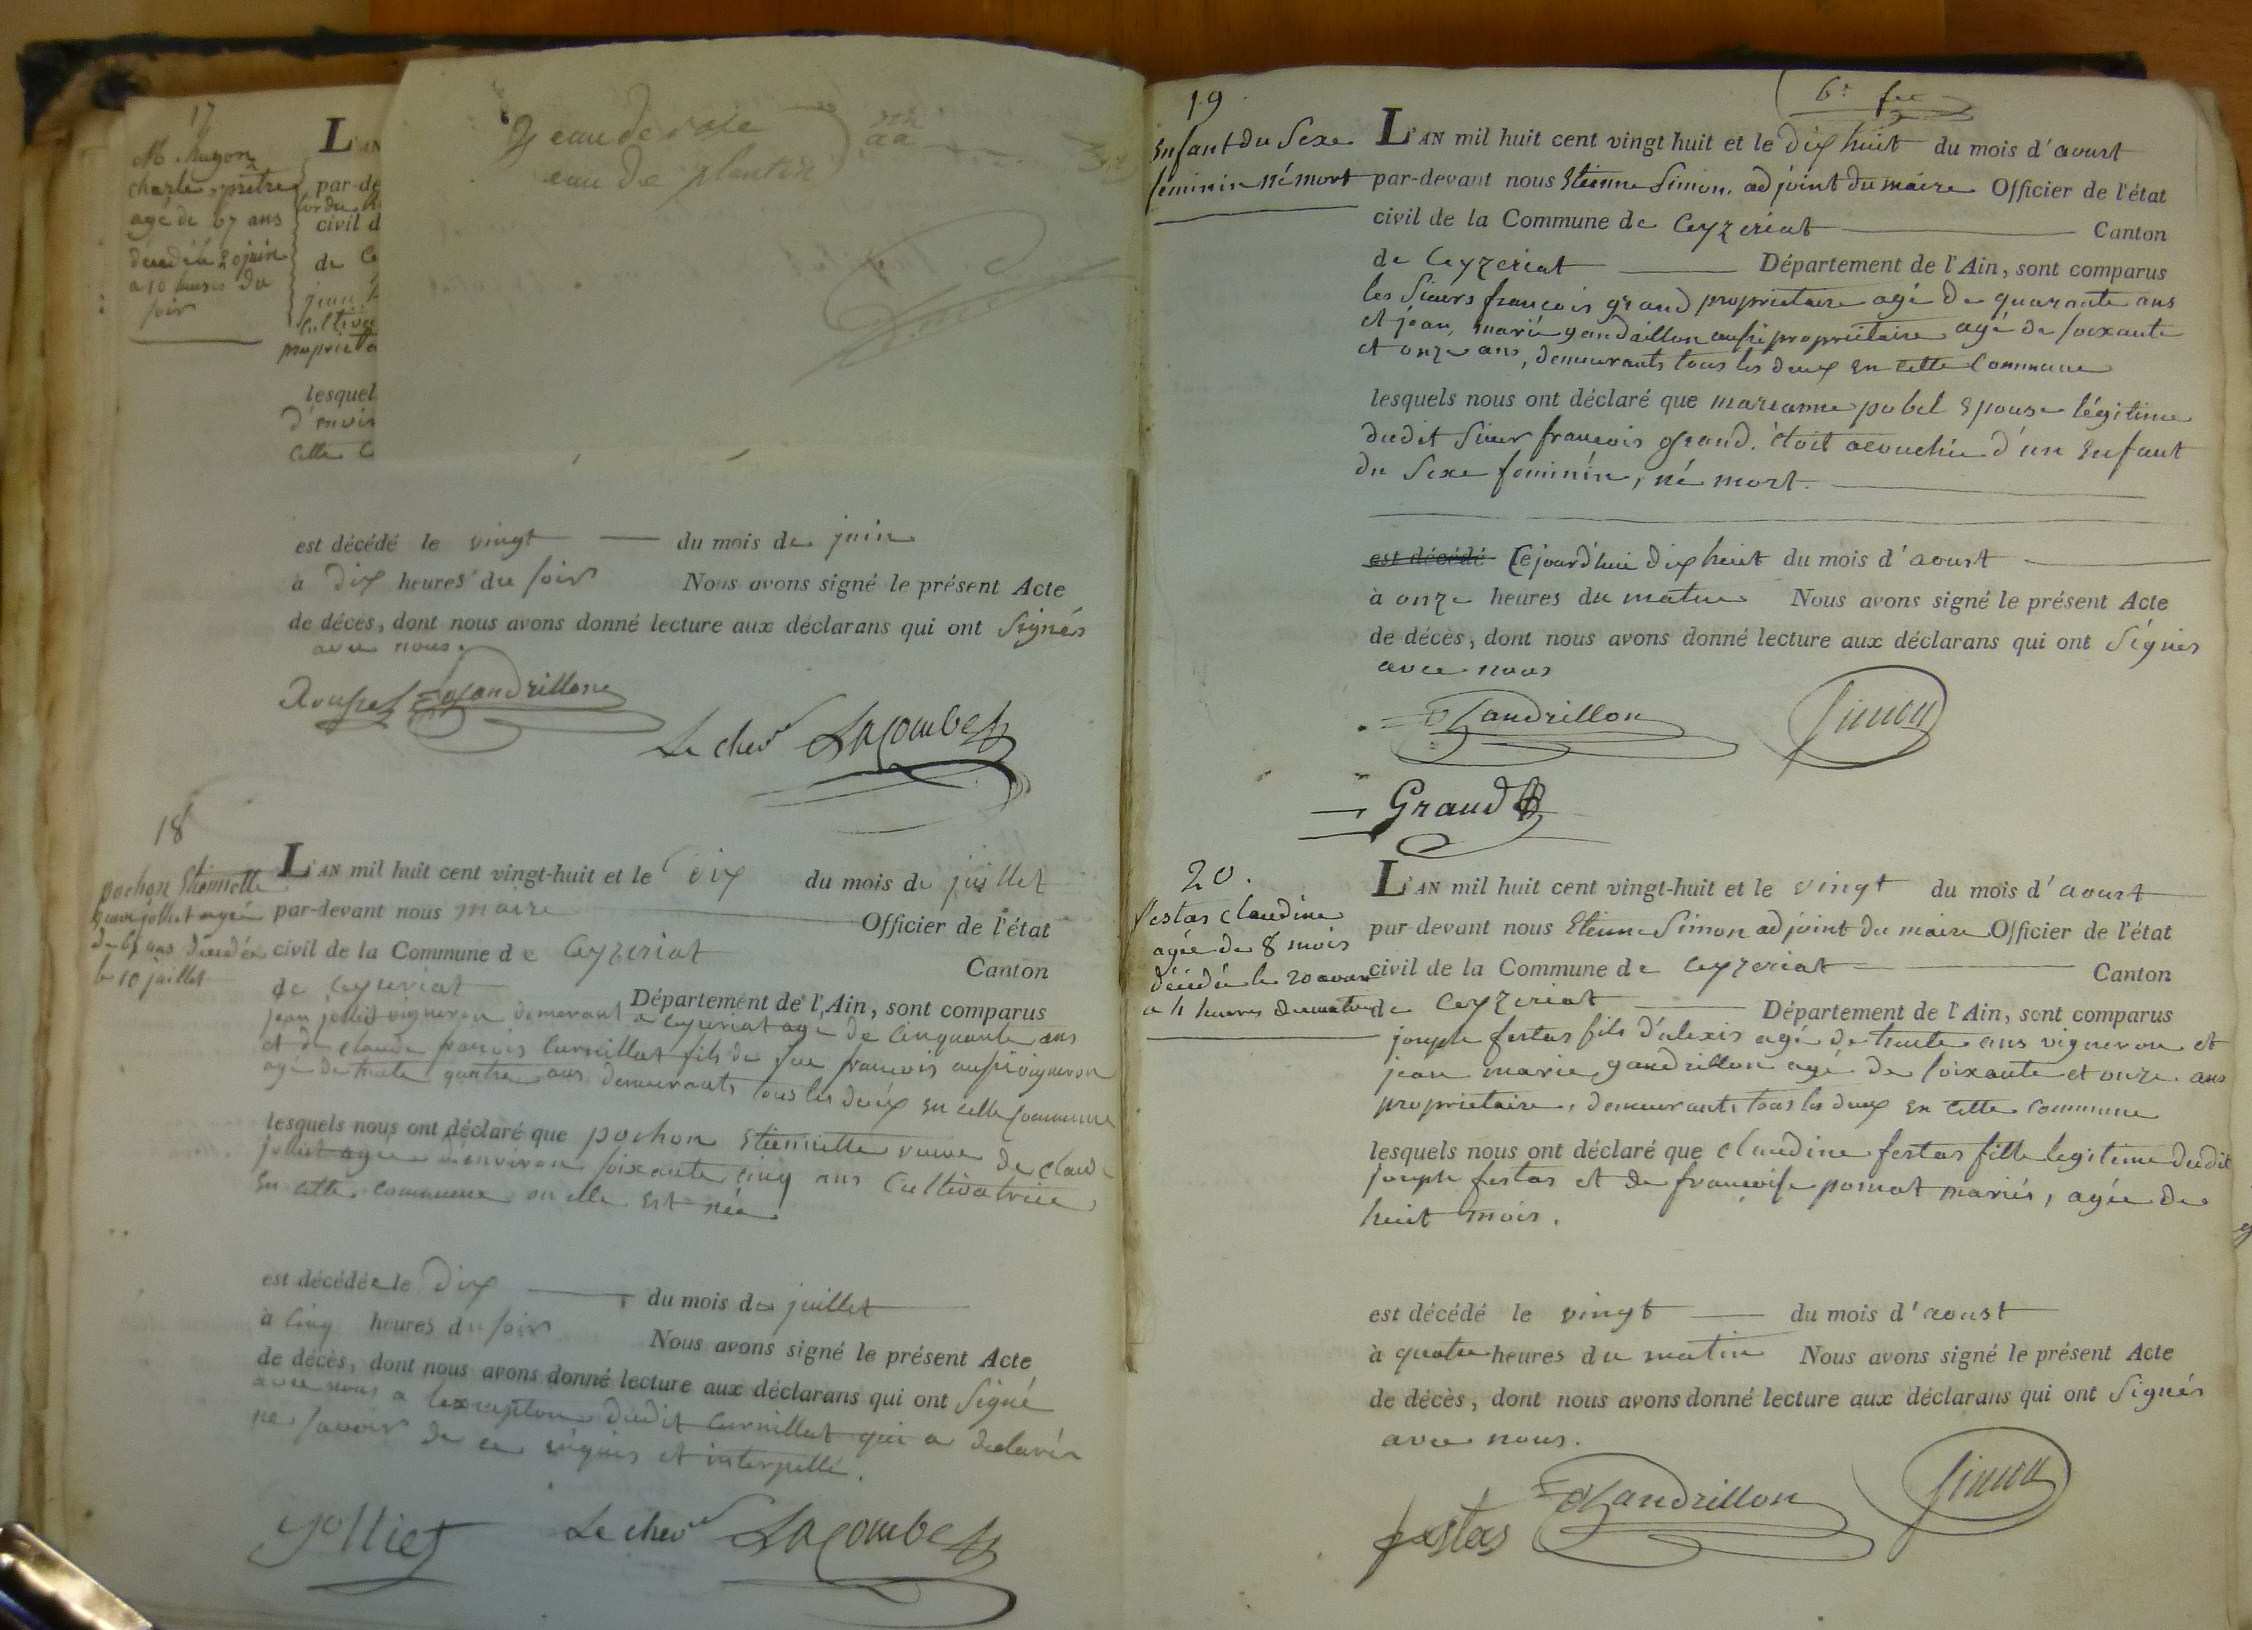 17
M. hugon
charle, prêtre
agé de 67 ans
décédé le 20 juin
a 10 heures du
soir
L'AN
par-de
civil d
de Ce
jean
cultiva
proprieta
lesquel
d'envir
cette C
eau de rose
eau de plantin
aa
est décédé le vingt du mois de juin
à dix heures du soir Nous avons signé le présent Acte
de décès, dont nous avons donné lecture aux déclarans qui ont Signés
avec nous.
Roussel Gandrillon
Le chev.r Lacombe
18
pochon Etiennette
veuve jolliet agée
de 65 ans décédée
le 10 juillet
L'AN mil huit cent vingt-huit et le dix du mois de juillet
par-devant nous maire Officier de l'état
civil de la Commune de Ceyzeriat
Canton
de Ceyzeriat Département de l'Ain, sont comparus
jean jolliet vigneron demeurant a ceyzeriat agé de Cinquante ans
et de claude françois Curnillat fils de feu françois aussi vigneron
agé de trente quatre ans demeurants tous les deux en cette Commune
lesquels nous ont déclaré que pochon Etiennette veuve de claude
jolliet agée d'environ soixante cinq ans Cultivatrice
En cette commune ou elle Est née
est décédée le dix du mois de juillet
à Cinq heures du soir Nous avons signé le présent Acte
de décès, dont nous avons donné lecture aux déclarans qui ont Signé
avec nous a lexception dudit Curnillat qui a declaré
ne savoir de ce enquis et interpellé.
Jolliet Le chev.r Lacombe
6.e fet
19
Enfant du Sexe
feminin né mort
L'AN mil huit cent vingt huit et le dix huit du mois d'aoust
par-devant nous Etienne Simon, adjoint du maire Officier de l'état
civil de la Commune de Ceyzeriat Canton
de Ceyzeriat Département de l'Ain, sont comparus
les Sieurs françois grand proprietaire agé de quarante ans
et jean, marie gandrillon aussi proprietaire agé de soixante
et onze ans, demeurants tous les deux en cette Commune
lesquels nous ont déclaré que marianne pobel Epouse légitime
dudit Sieur françois grand. étoit acouchée d'un Enfant
du Sexe feminin, né mort.
est décédé Cejourd'hui dix huit du mois d'aoust
à onze heures du matin Nous avons signé le présent Acte
de décès, dont nous avons donné lecture aux déclarans qui ont Signés
avec nous
Gandrillon Simon
Grand
20.
festas claudine
agée de 8 mois
décédée le 20 aoust
a 4 heures du matin
L'AN mil huit cent vingt-huit et le vingt du mois d'aoust
par-devant nous Etienne Simon adjoint du maire Officier de l'état
civil de la Commune de Ceyzeriat Canton
de Ceyzeriat Département de l'Ain, sont comparus
joseph festas fils d'alexis agé de trente ans vigneron et
jean marie gandrillon agé de soixante et onze ans
proprietaire, demeurants tous les deux en cette commune
lesquels nous ont déclaré que claudine festas fille legitime dudit
joseph festas et de françoise pomat mariés, agée de
huit mois.
est décédé le vingt du mois d'aoust
à quatre heures du matin Nous avons signé le présent Acte
de décès, dont nous avons donné lecture aux déclarans qui ont Signés
avec nous.
festas Gandrillon Simon